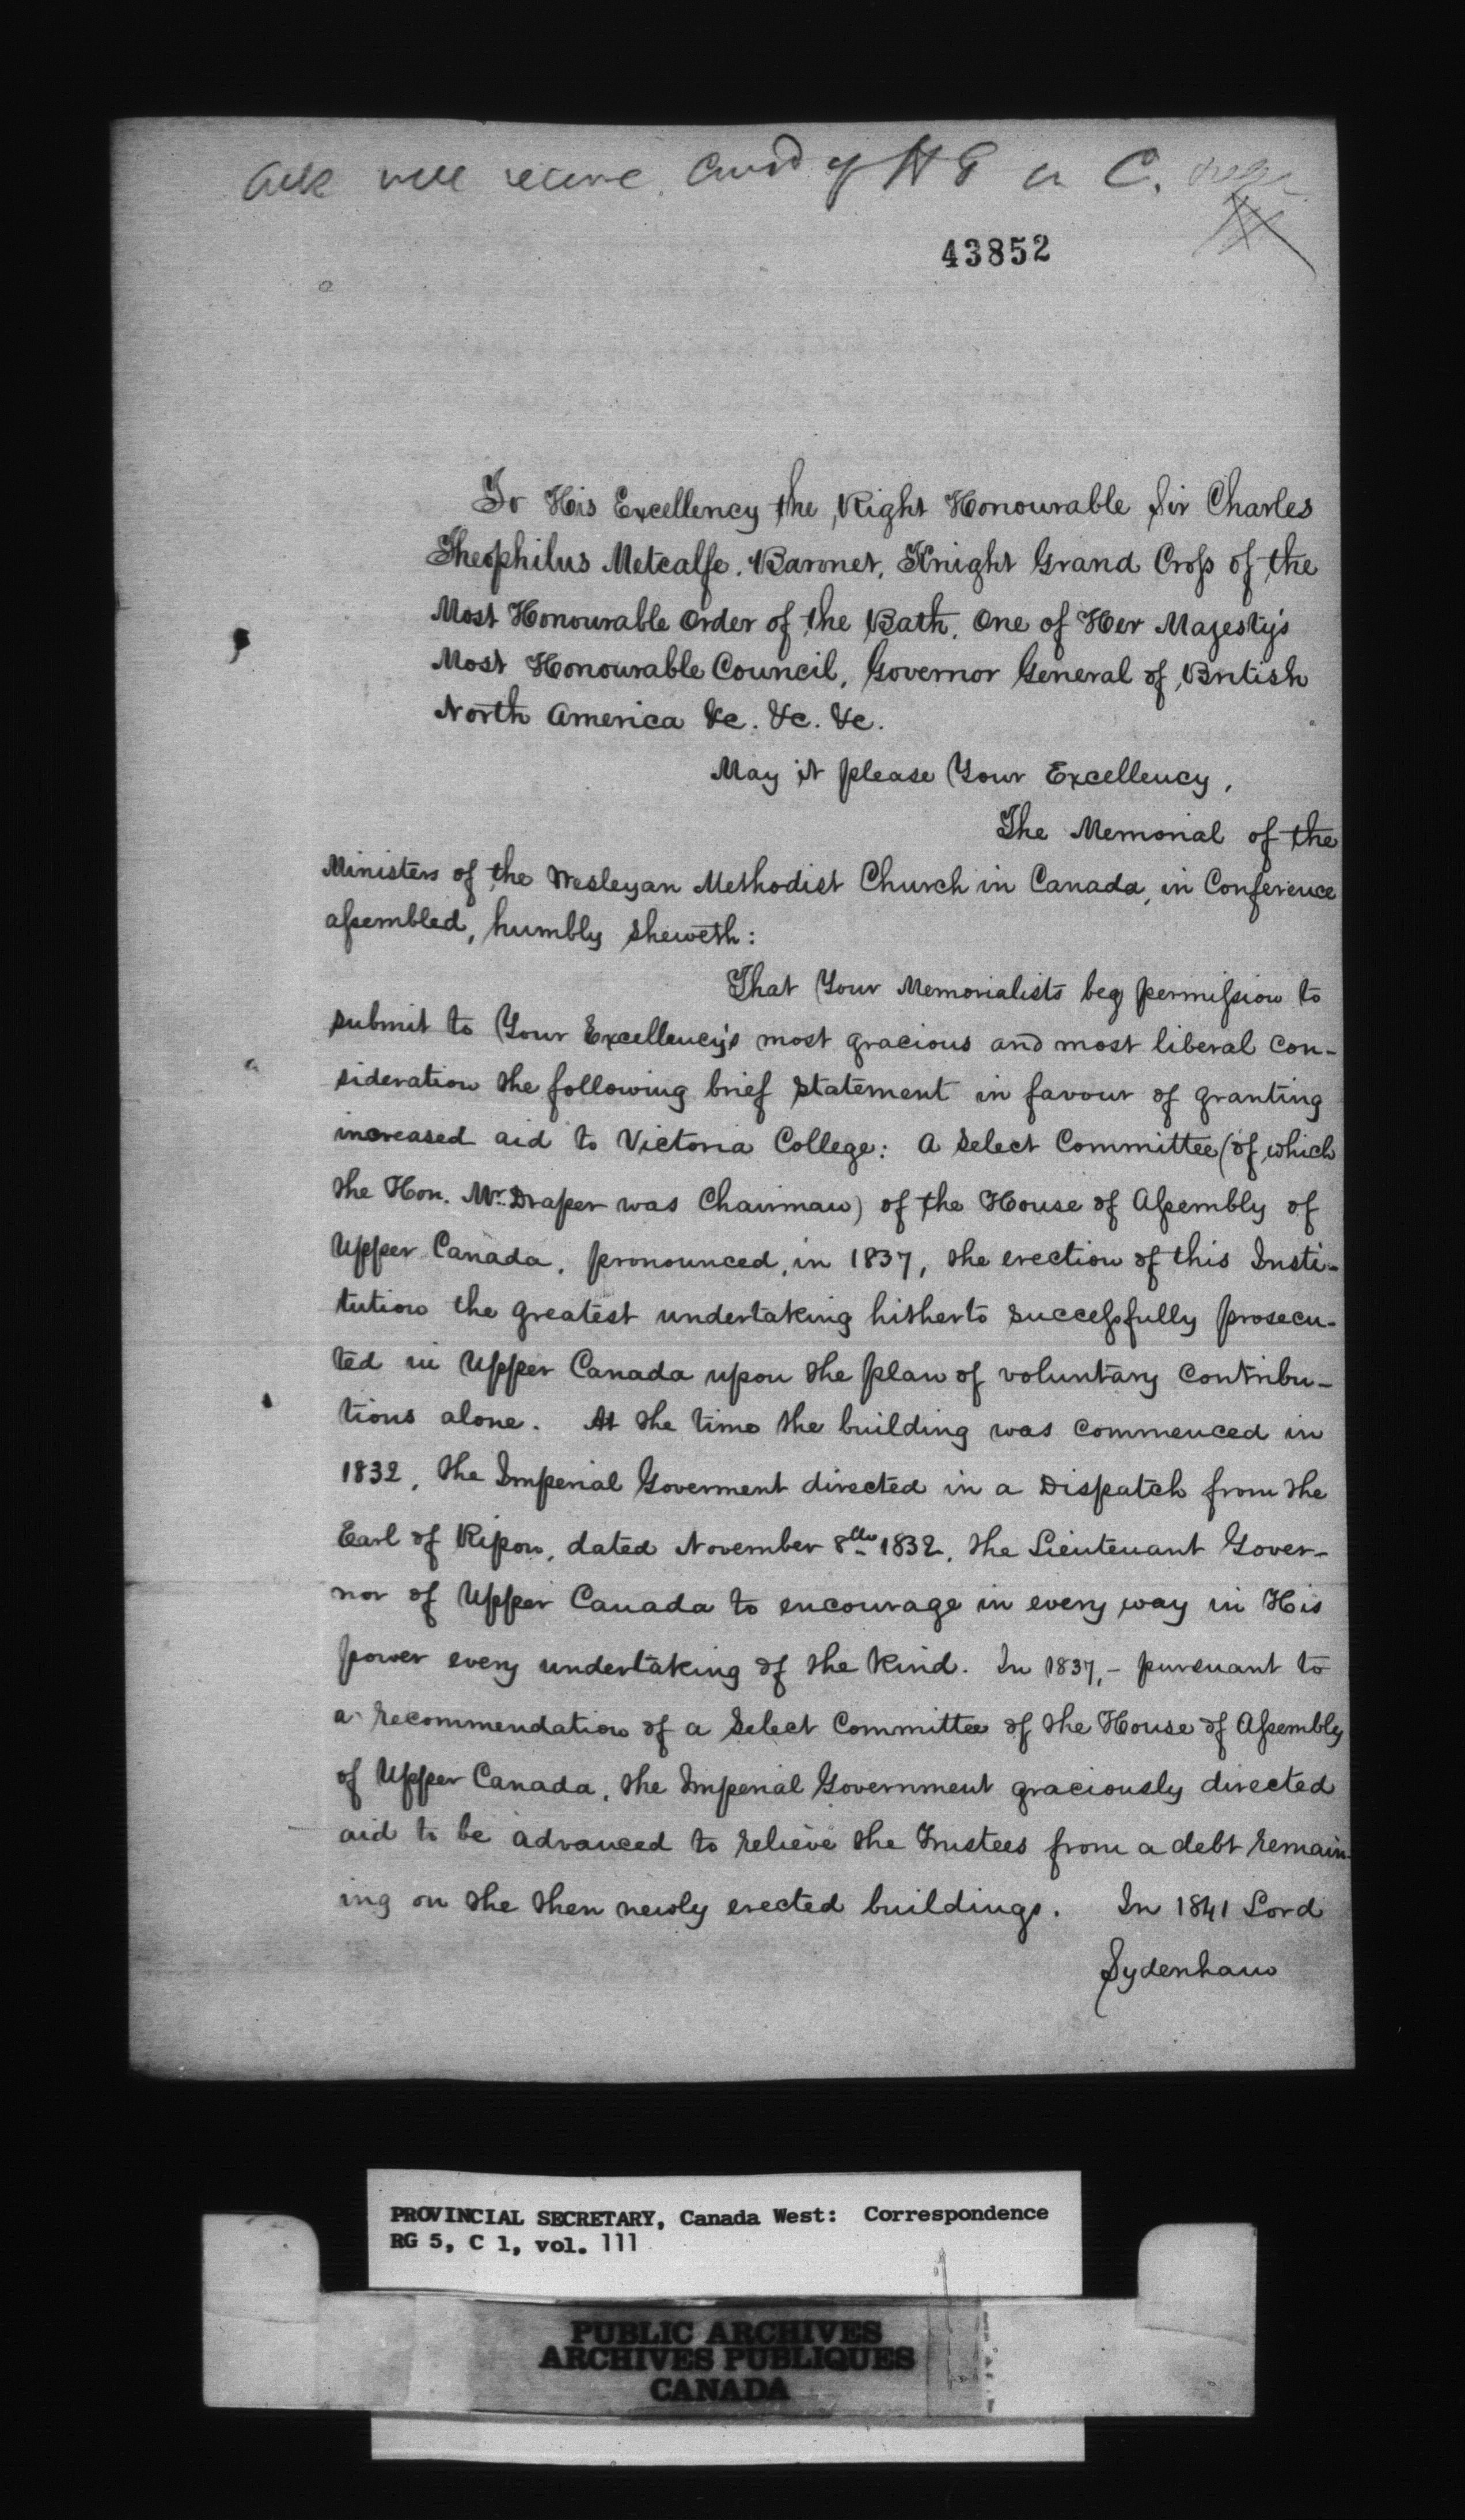 Ack receive Consd of H E in C.
43852
To His Excellency the Right Honourable Sir Charles
Theophilus Metcalfe. Baronet, Knight Grand Cross of the
Most Honourable Order of the Bath, One of Her Majesty's
Most Honourable Council, Governor General of British
North America &c. &c. &c.
May it please Your Excellency,
The Memorial of the
Ministers of the Wesleyan Methodist Church in Canada, in Conference
assembled, humbly sheweth:
That Your Memorialists beg permission to
submit to Your Excellency's most gracious and most liberal con-
sideration the following brief statement in favour of granting
increased aid to Victoria College: A Select Committee (of which
the Hon. Mr. Draper was Chairman) of the House of Assembly of
Upper Canada, pronounced, in 1837, the erection of this Insti-
tution the greatest undertaking hitherto successfully prosecu-
ted in Upper Canada upon the plan of voluntary contribu-
tions alone. At the time the building was commenced in
1832, the Imperial Goverment directed in a Dispatch from the
Earl of Ripon, dated November 8th 1832, the Lieutenant Gover-
nor of Upper Canada to encourage in every way in His
power every undertaking of the kind. In 1837,- pursuant to
a recommendation of a Select Committee of the House of Assembly
of Upper Canada, the Imperial Government graciously directed
aid to be advanced to relieve the Trustees from a debt remain-
ing on the then newly erected buildings. In 1841 Lord
Sydenham
PROVINCIAL SECRETARY, Canada West: Correspondence
RG 5, C 1, vol. 111
PUBLIC ARCHIVES
ARCHIVES PUBLIQUES
CANADA